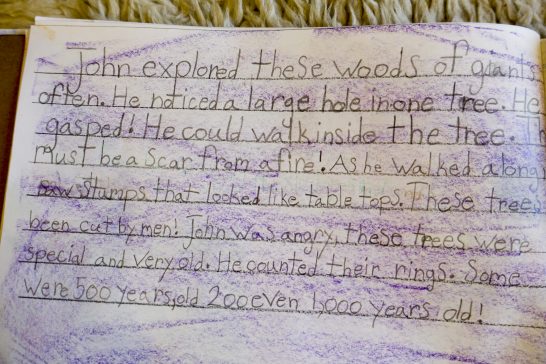 John explored these woods of giants
often. He noticed a large hole in one tree. He
gasped! He could walk inside the tree. Th
Must be a scar from a fire! As he walked along
saw stumps that looked like table tops. These trees
been cut by men! John was angry, these trees were
special and very old. He counted their rings. Some
were 500 years, old 200 even 1,000 years old!